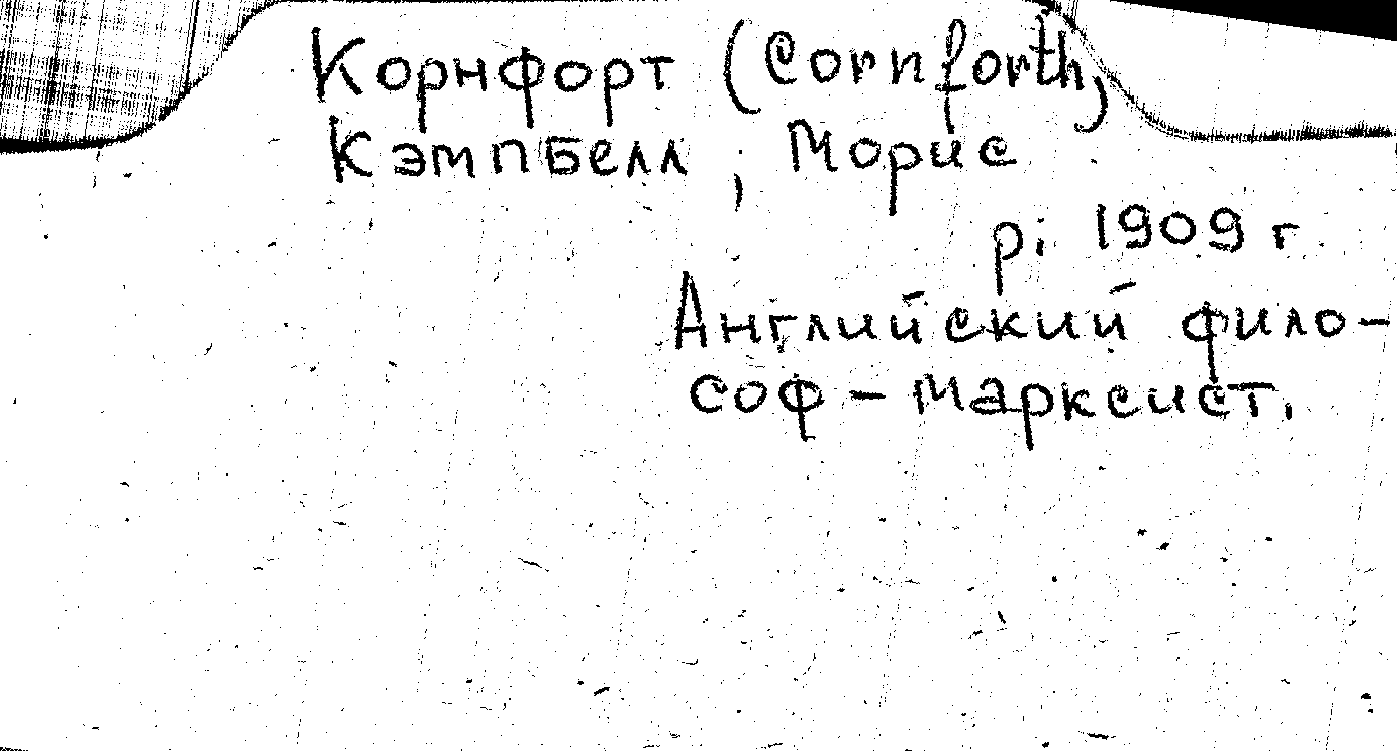 Корнфорт (Cornforth)
Кэмпбелл, Морис
р. 1909 г.
Английский фило-
соф - марксист.